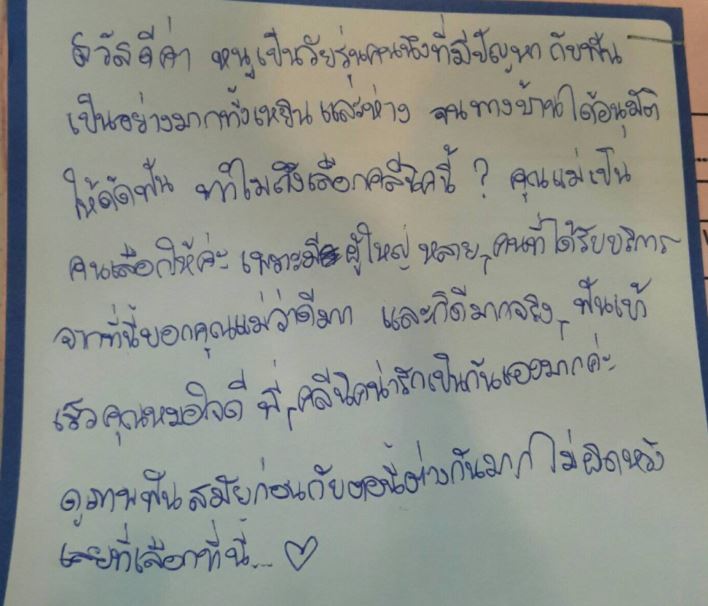 สวัสดีค่า หนูเป็นวัยรุ่นคนนึงที่มีปัญหากับฟัน
เป็นอย่างมากทั้งเหยินและห่าง จนทางบ้านได้อนุมัติ
ให้ดัดฟัน ทำไมถึงเลือกคลีนิคนี้ ? คุณแม่เป็น
คนเลือกให้ค่ะ เพราะมีผู้ใหญ่หลายๆคนที่ได้รับบริการ
จากที่นี้บอกคุณแม่ว่าดีมาก และก็ดีมากจริงๆ ฟันเข้า
เร็ว คุณหมอใจดี พี่ๆคลีนิคน่ารักเป็นกันเองมากค่ะ
ดูภาพฟันสมัยก่อนกับตอนนี้ต่างกันมาก ไม่ผิดหวัง
เลยที่เลือกที่นี้... ♡